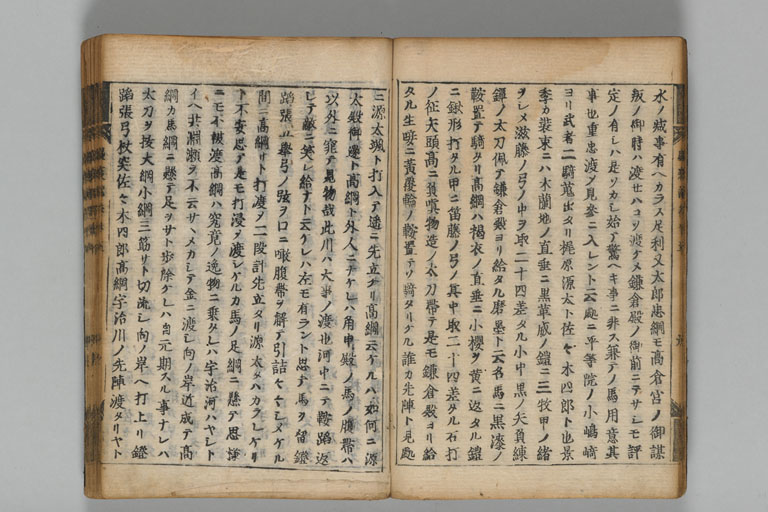 水ノ減事有ヘカラス足利又太郎忠綱モ高倉宮ノ御謀
叛ノ御時ハ渡セハコソ渡ケメ鎌倉殿ノ御前ニテサシモ評
定ノ有シハ是ソカシ始テ驚ヘキ事ニ非ス兼テノ馬用意其
事也重忠渡ノ見參ニ入レント云處ニ平等院ノ小嶋崎
ヨリ武者二騎蒐出タリ梶原源太ト佐々木四郎ト也景
季カ裝束ニハ木蘭地ノ直垂ニ黒革威ノ鎧ニ三枚甲ノ緒
ヲシメ滋藤ノ弓ノ中ヲ取二十四差タル小中黒ノ矢負練
鐔ノ太刀佩テ鎌倉殿ヨリ給タル磨墨ト云名馬ニ黒漆ノ
鞍置テ騎タリ高綱ハ褐衣ノ直垂ニ小櫻ヲ黄ニ返タル鎧
ニ鍬形打タル甲ニ笛藤ノ弓ノ其中取二十四差タル石打
ノ征矢頭高ニ負嗔物造ノ太刀帶テ是モ鎌倉殿ヨリ給
タル生唼ニ黄覆輪ノ鞍置テソ騎タリケル誰カ先陣ト見處
ニ源太颯ト打入テ遙ニ先立タリ高綱云ケルハ如何ニ源
太殿御邊ト高綱ト外人ニナケレハ角申殿ノ馬ノ腹帶ハ
以外ニ窕テ見物哉此川ハ大事ノ渡也河中ニテ鞍蹈返
シテ敵ニ笑レ給ナト云ケレハ左モ有ラント思テ馬ヲ留鐙
蹈張立擧弓ノ弦ヲ口ニ噉腹帶ヲ解テ引詰々々シメケル
間ニ高綱サト打渡ヲ二段計先立タリ源太タハカラレケリ
ト不安思テ是モ打浸テ渡シケルカ馬ノ足綱ニ懸テ思樣
ニモ不被渡高綱ハ究竟ノ逸物ニ乗タレハ宇治河ハヤシト
イヘ共淵瀬ヲ不云サヽメカシテ金ニ渡シ向ノ岸近成テ高
綱カ馬綱ニ懸テ足ヲサト歩除ケレハ自元期スル事ナレハ
太刀ヲ抜大綱小綱三筋サト切流シ向ノ岸ヘ打上リ鐙
蹈張弓杖突佐々木四郎高綱宇治川ノ先陣渡タリヤト